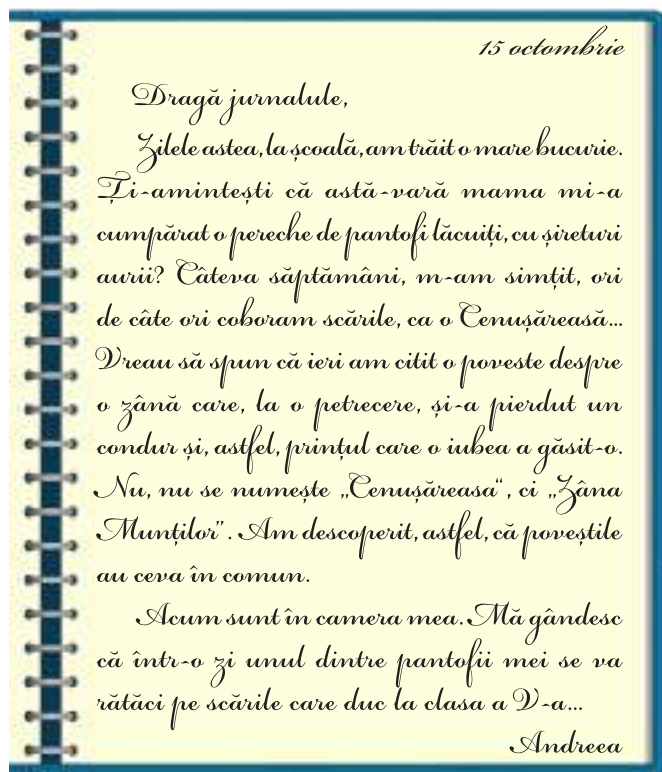 15 octombrie
Dragă jurnalule,
Zilele astea, la școală, am trăit o mare bucurie.
Ți-amintești că astă-vară mama mi-a
cumpărat o pereche de pantofi lăcuiți, cu șireturi
aurii? Câteva săptămâni, m-am simțit, ori
de câte ori coboram scările, ca o Cenușăreasă...
Vreau să spun că ieri am citit o poveste despre
o zână care, la o petrecere, și-a pierdut un
condur și, astfel, prințul care o iubea a găsit-o.
Nu, nu se numește „Cenușăreasa“, ci „Zâna
Munților”. Am descoperit, astfel, că poveștile
au ceva în comun.
Acum sunt în camera mea. Mă gândesc
că într-o zi unul dintre pantofii mei se va
rătăci pe scările care duc la clasa a V-a...
Andreea